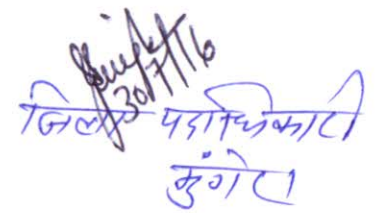 30/7/16
जिला पदाधिकारी
मुंगेर।